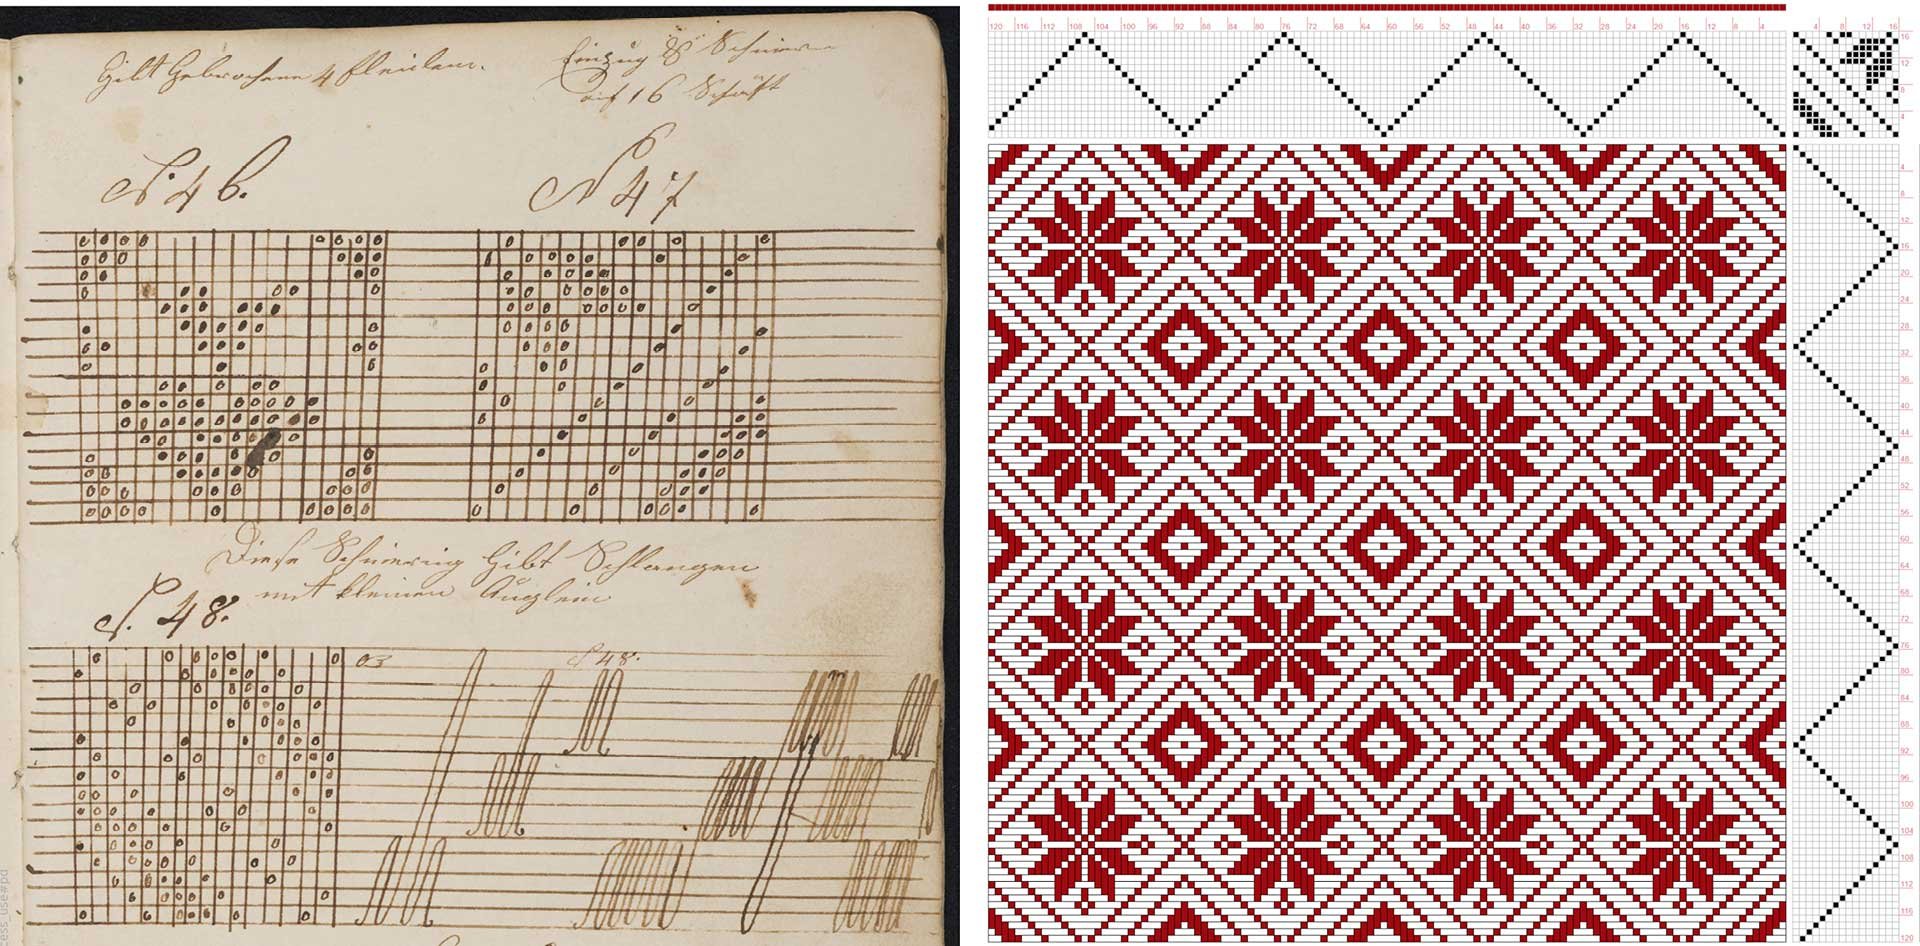 Gibt Gebrochene 4 fleidlein.
Einzug &
auf 16 Schäft
N. 46.
N 47
Diese Schnierung Gibt Schlangen
mit kleinen Äuglein
N. 48.
03
N 48.
120 116 112 108 104 100 96 92 88 84 80 76 72 68 64 60 56 52 48 44 40 36 32 28 24 20 16 12 8 4
4 8 12 16
16
12
8
4
4
8
12
16
20
24
28
32
36
40
44
48
52
56
60
64
68
72
76
80
84
88
92
96
100
104
108
112
116
120
ess_use#pd